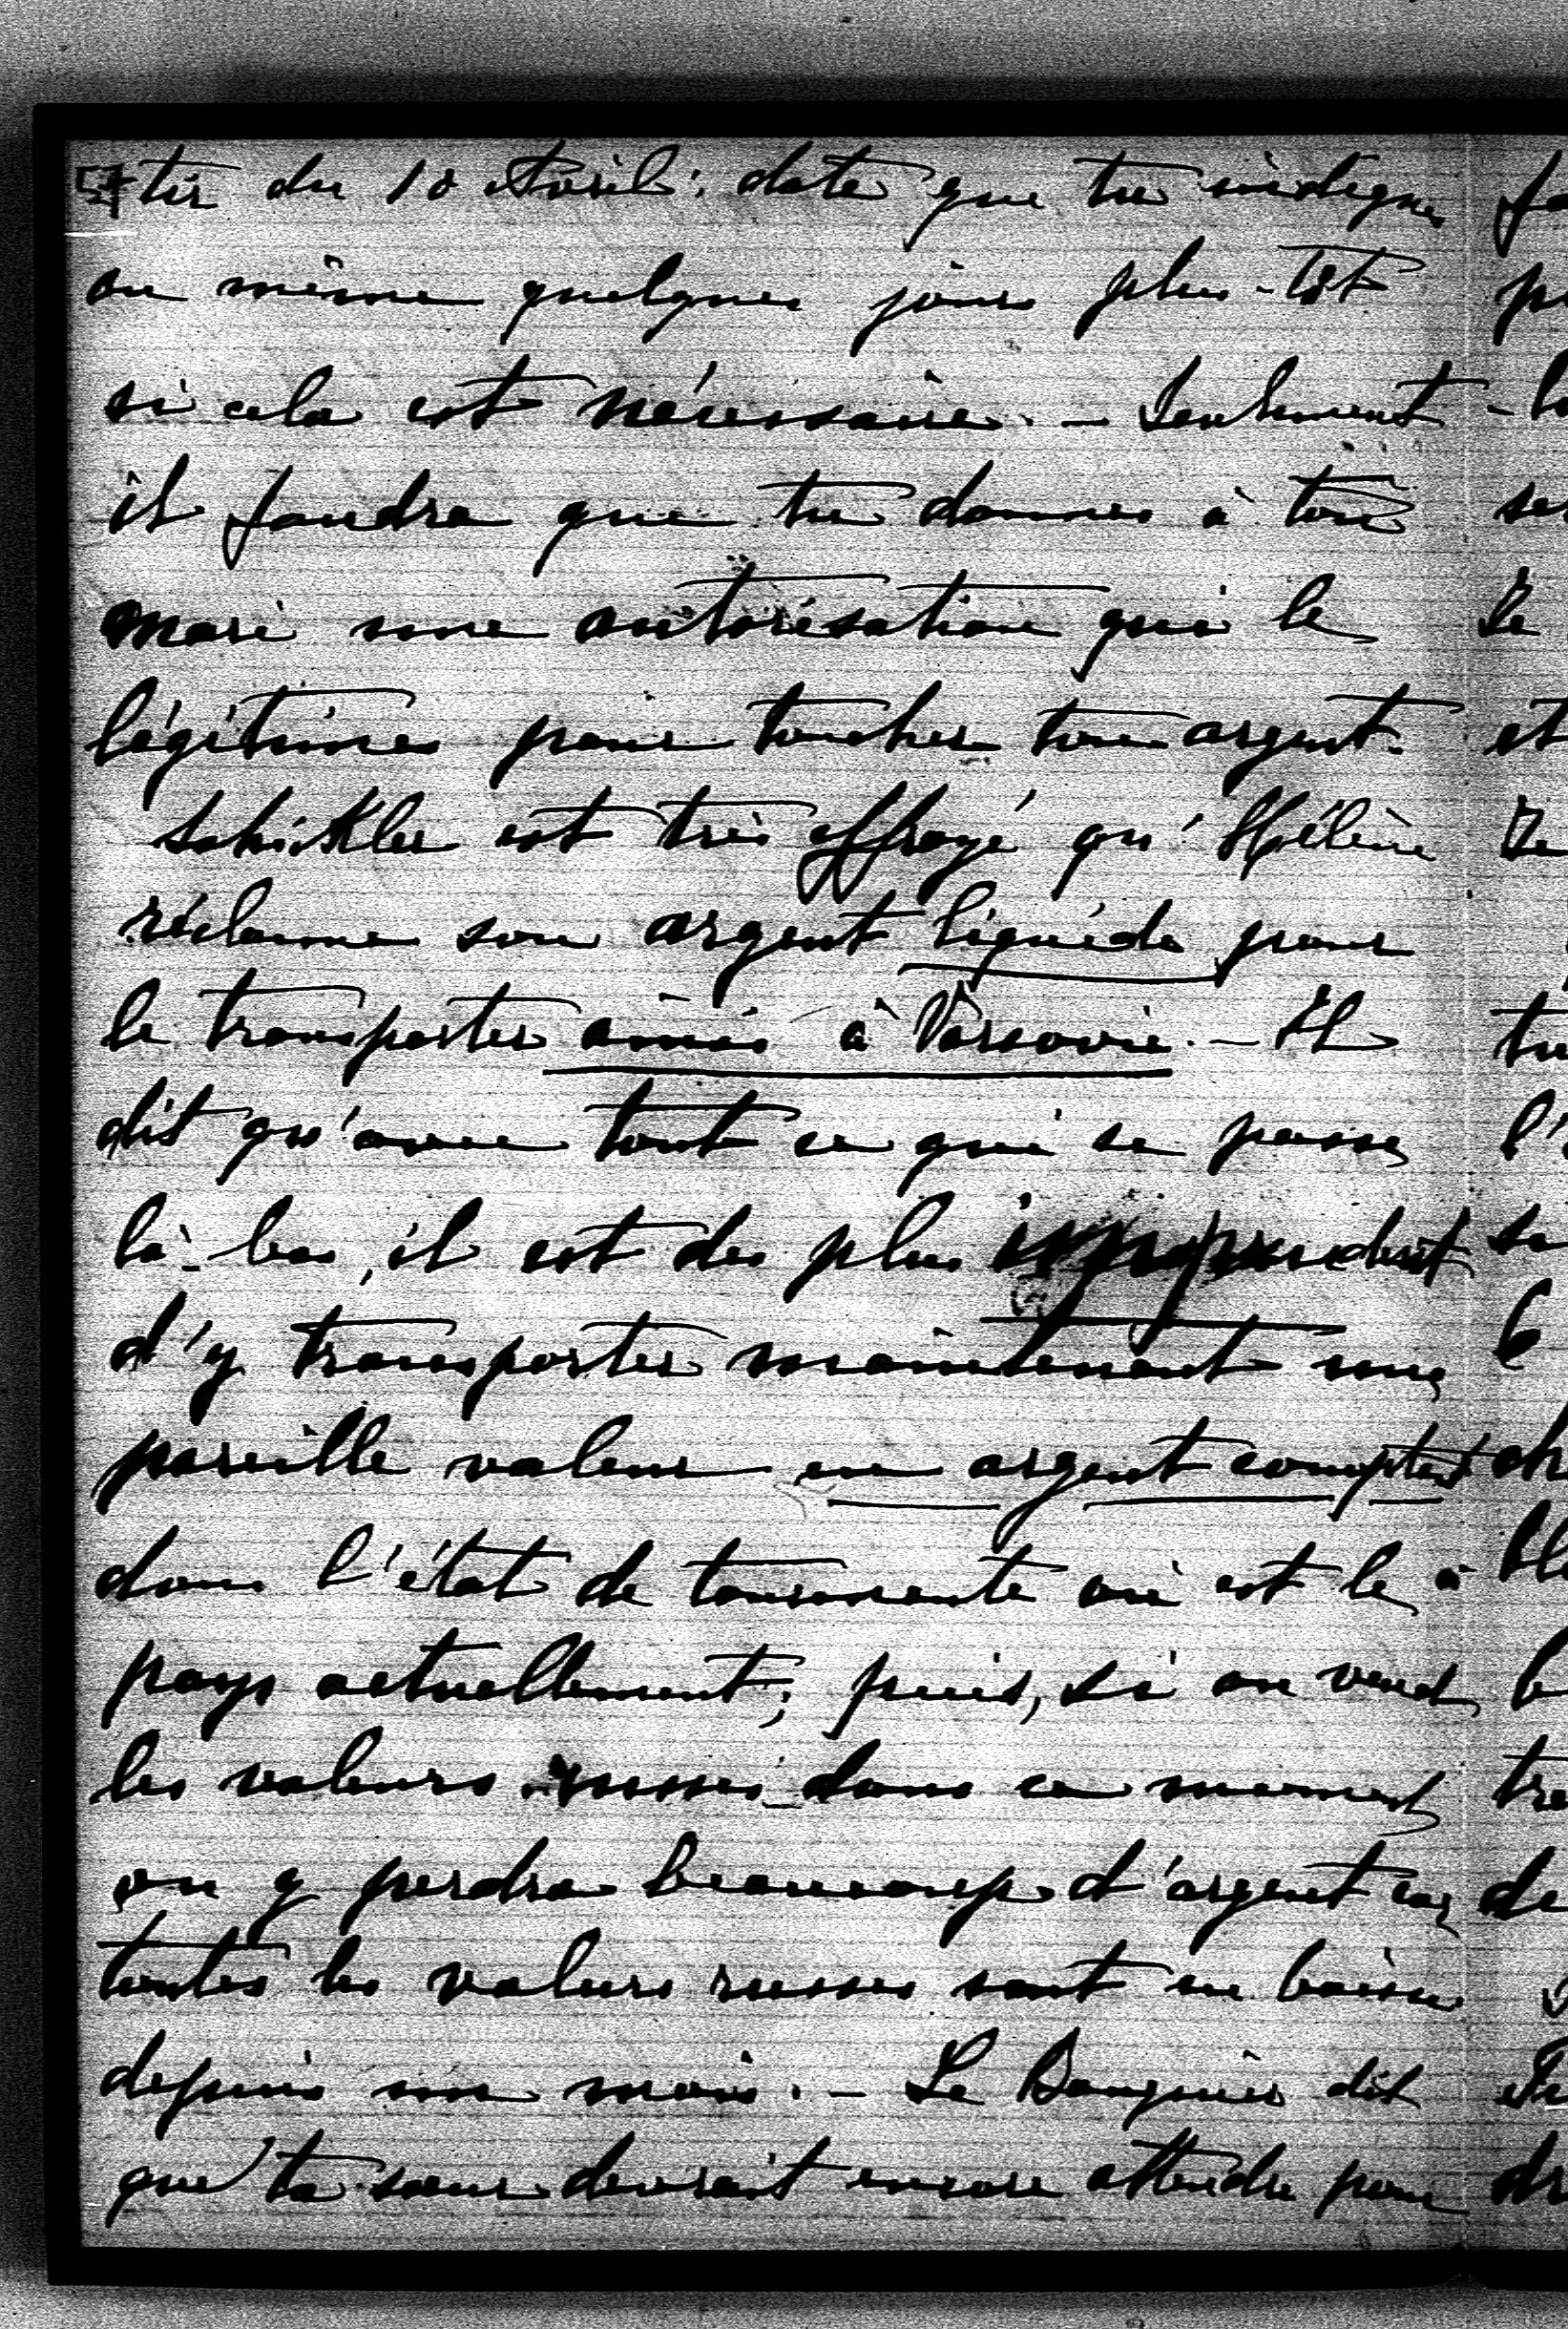 tir du 10 Avril: date que tu indiques
ou même quelques jours plus-tôt
si cela est nécessaire. — Seulement
il faudra que tu donnes à ton
mari une autorisation qui le
légitimes pour toucher ton argent.
Schikler est très effrayé qu'Hélène
réclame son argent liquide pour
le transporter ainsi à Varsovie. — Il
dit qu'avec tout ce qui se passe
là-bas, il est des plus imprudent
d'y transporter maintenant une
pareille valeur en argent comptant
dans l'état de tourmente où est le
pays actuellement; puis, si on vend
les valeurs russes dans ce moment
on y perdra beaucoup d'argent car
toutes les valeurs russes sont en baisse
depuis un mois. — Le Banquier dit
que ta sœur devrait encore attendre pour